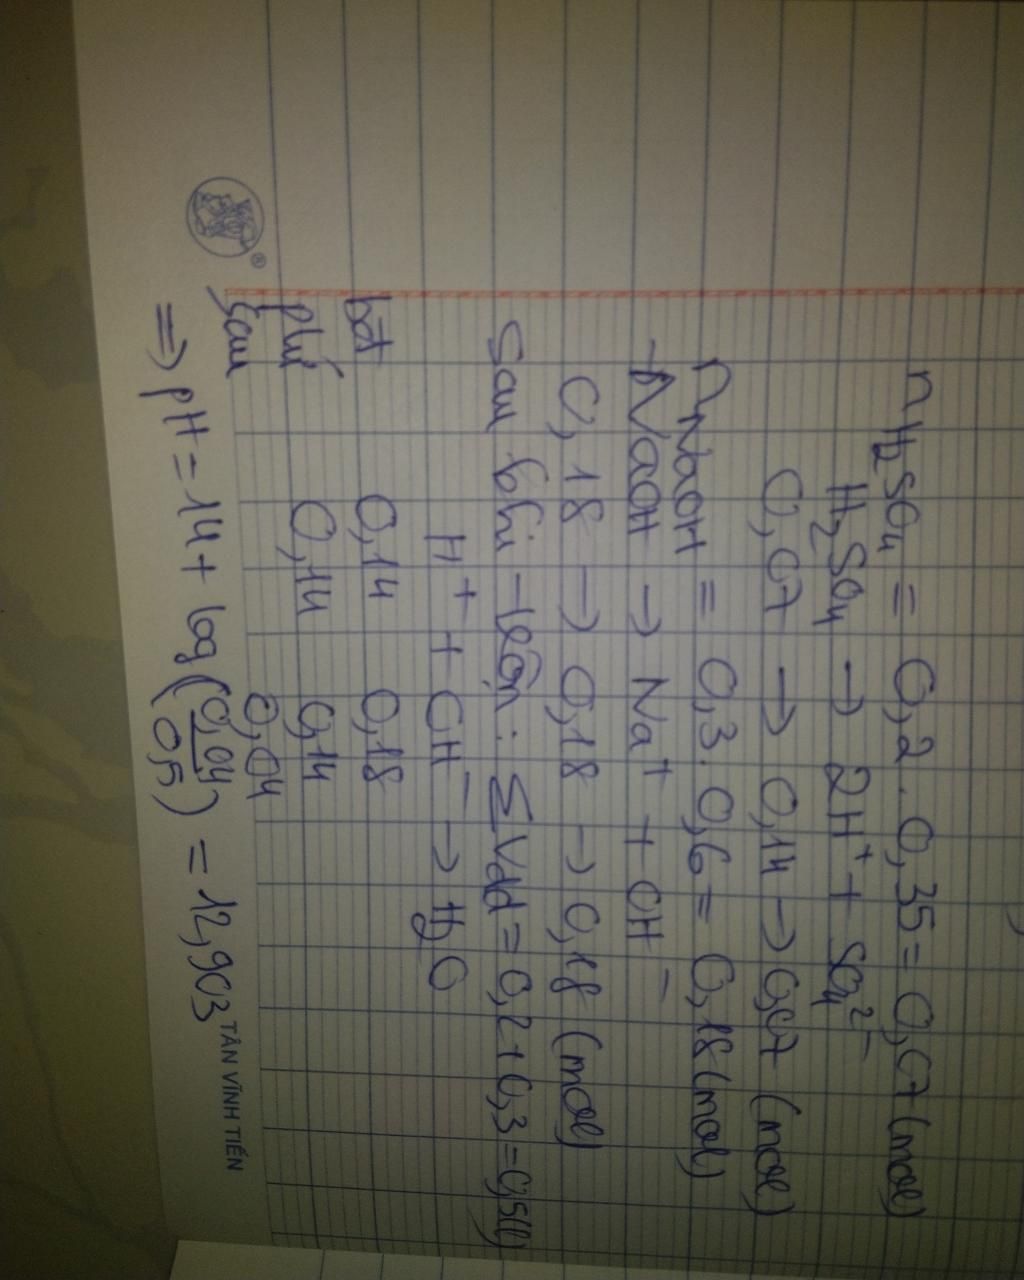 n H₂SO₄ = 0,2 . 0,35 = 0,07 (mol)
H₂SO₄ → 2H⁺ + SO₄²⁻
0,07 → 0,14 → 0,07 (mol)
n NaOH = 0,3 . 0,6 = 0,18 (mol)
NaOH → Na⁺ + OH⁻
0,18 → 0,18 → 0,18 (mol)
Sau khi trộn : ΣVdd = 0,2 + 0,3 = 0,5 (l)
H⁺ + OH⁻ → H₂O
bđ 0,14 0,18
pứ 0,14 0,14
sau 0,04
⇒ pH = 14 + log (0,04/0,5) = 12,903
TÂN VĨNH TIẾN
®